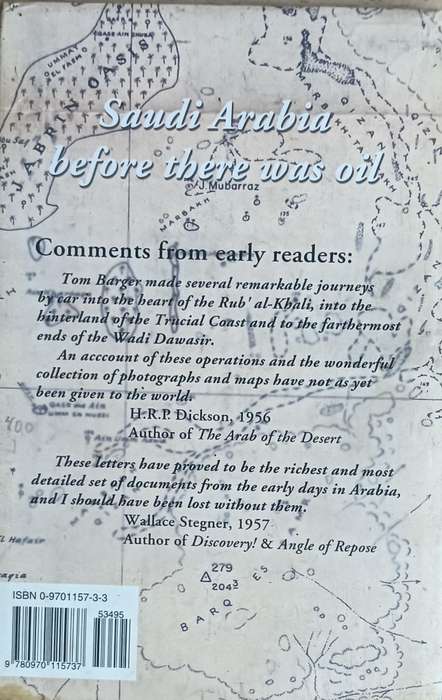 QASR AIN DHUBA
UMMAT
EL RESMO
JABRIN OASIS
Saudi Arabia
before there was oil
J. Mubarraz
MARBAKH
Comments from early readers:
Tom Barger made several remarkable journeys
by car into the heart of the Rub' al-Khali, into the
hinterland of the Trucial Coast and to the farthermost
ends of the Wadi Dawasir.
An acccount of these operations and the wonderful
collection of photographs and maps have not as yet
been given to the world.
H.R.P. Dickson, 1956
Author of The Arab of the Desert
These letters have proved to be the richest and most
detailed set of documents from the early days in Arabia,
and I should have been lost without them.
Wallace Stegner, 1957
Author of Discovery! & Angle of Repose
400
279
204
BARQ ES
ISBN 0-9701157-3-3
53495
9 780970 115737